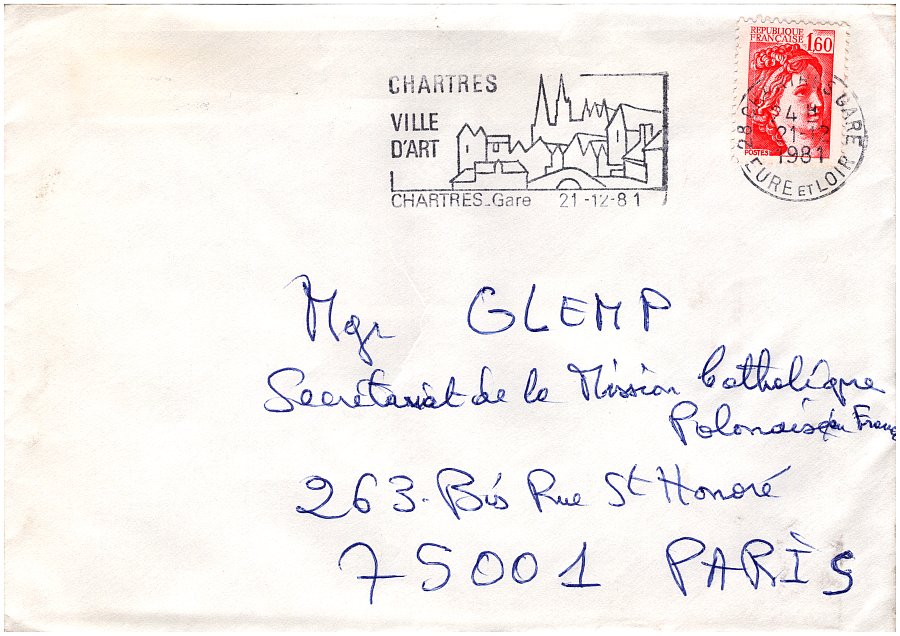 CHARTRES
VILLE
D'ART
CHARTRES_Gare 21-12-81
REPUBLIQUE
FRANÇAISE 1,60
POSTES
GARE
21-12
1981
28 EURE ET LOIR
Mgr GLEMP
Secrétariat de la Mission Catholique
Polonaise en France
263 - Bis Rue St Honoré
75001 PARIS